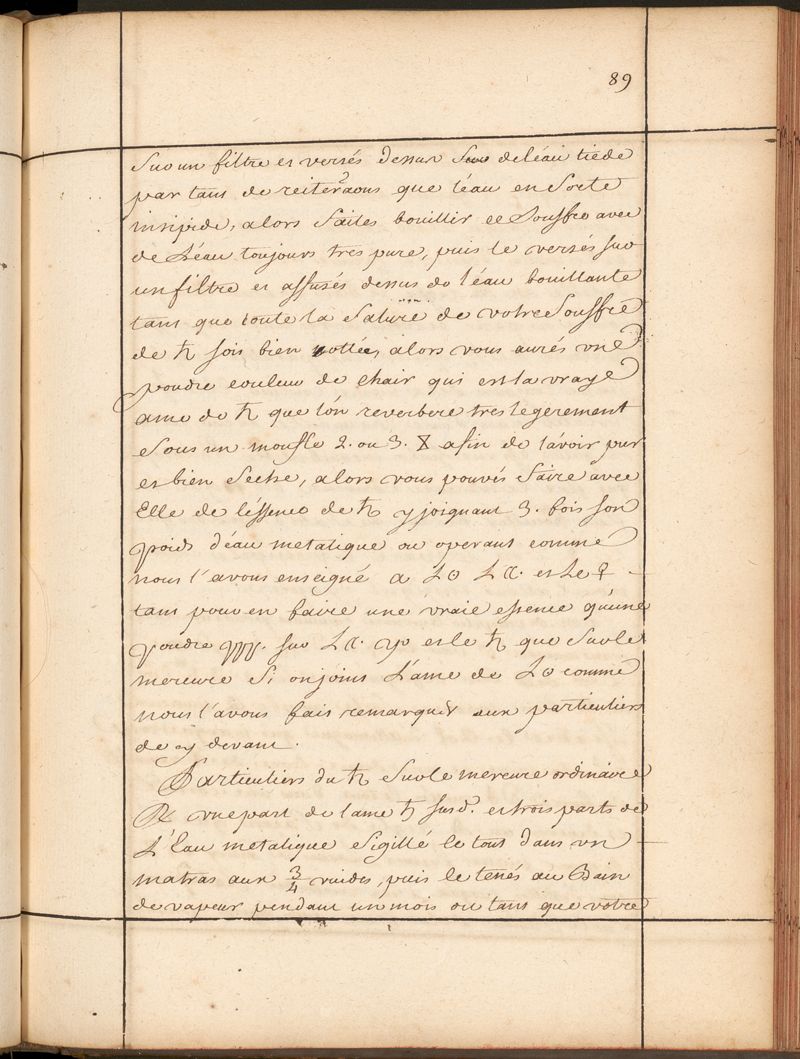 89
Sur un filtre et versés dessus de léau tiede
par tant de reiterãons que léau en Sorte
insipide, alors faites bouillir ce Souffre avec
de Léau toujours tres pure, puis le versés sur
un filtre et affusés dessus de léau bouillante
tant que toute la Salure de votre Souffre
de ♄ soit bien ottée, alors vous aurés une
poudre couleur de Chair qui est la vraye
ame de ♄ que lón reverbere tres legerement
Sous un moufle 2. ou 3. afin de lávoir pur
et bien Seche, alors vous pouvés faire avec
Elle de léssence de ♄ y joignant 3. fois son
poids déau metalique ou operant comme
nous l'avons enseigné a L☉ L☾. et Le ☿
tant pour en faire une vraie essence quúne
poudre ppp. sur L☾. et le ♄ que Sur le
mercure Si on joint L'ame de L☉ comme
nous l'avons fait remarquer aux particuliers
de cy devant.
Particuliers du ♄ Sur le mercure ordinaire
℞ une part de lame ♄ susd. et trois parts de
L'Eau metalique Sigillé le tout dans un
matras aux 3/4 vuides, puis le tenés au Bain
de vapeur pendant un mois ou tant que votre